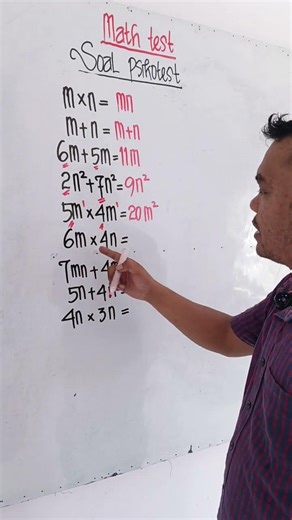 Math test
Soal psikotest
m×n = mn
m+n = m+n
6m+5m=11m
2n²+7n²=9n²
5m¹×4m¹=20m²
6m×4n=
7mn+4
5n+4n=
4n×3n=